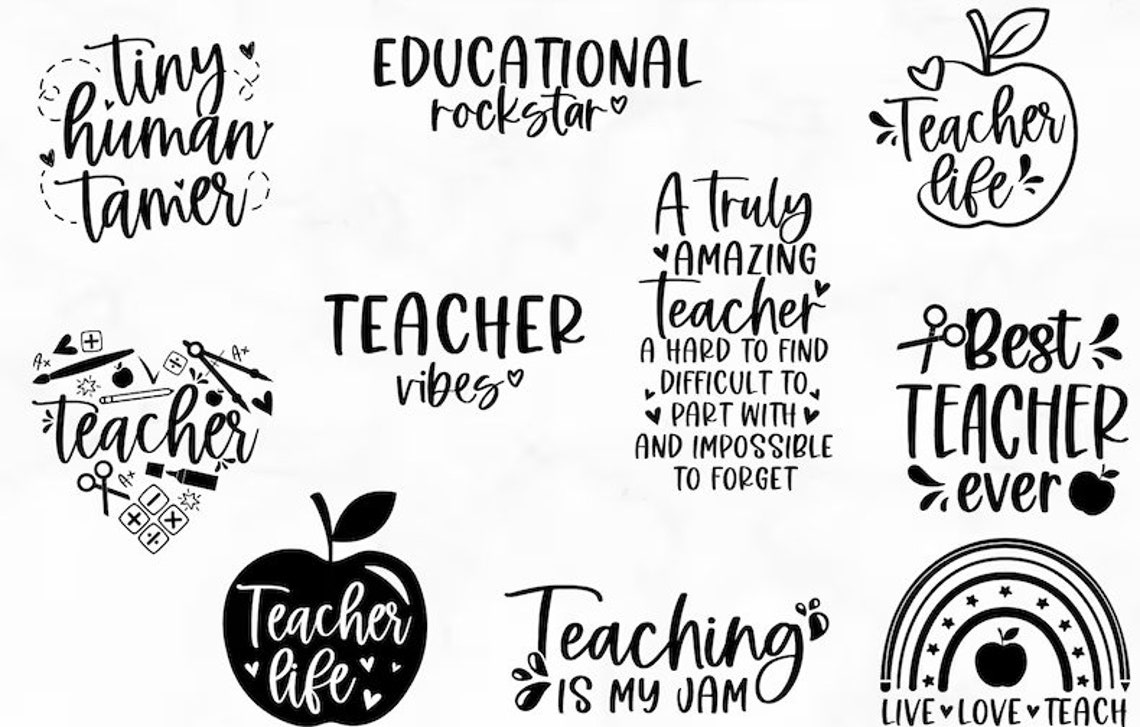 tiny
human
tamer
EDUCATIONAL
rockstar
Teacher
life
A truly
AMAZING
teacher
A HARD TO FIND
DIFFICULT TO
PART WITH
AND IMPOSSIBLE
TO FORGET
TEACHER
vibes
A+
A+
teacher
A+
Best
TEACHER
ever
Teacher
life
Teaching
IS MY JAM
LIVE LOVE TEACH